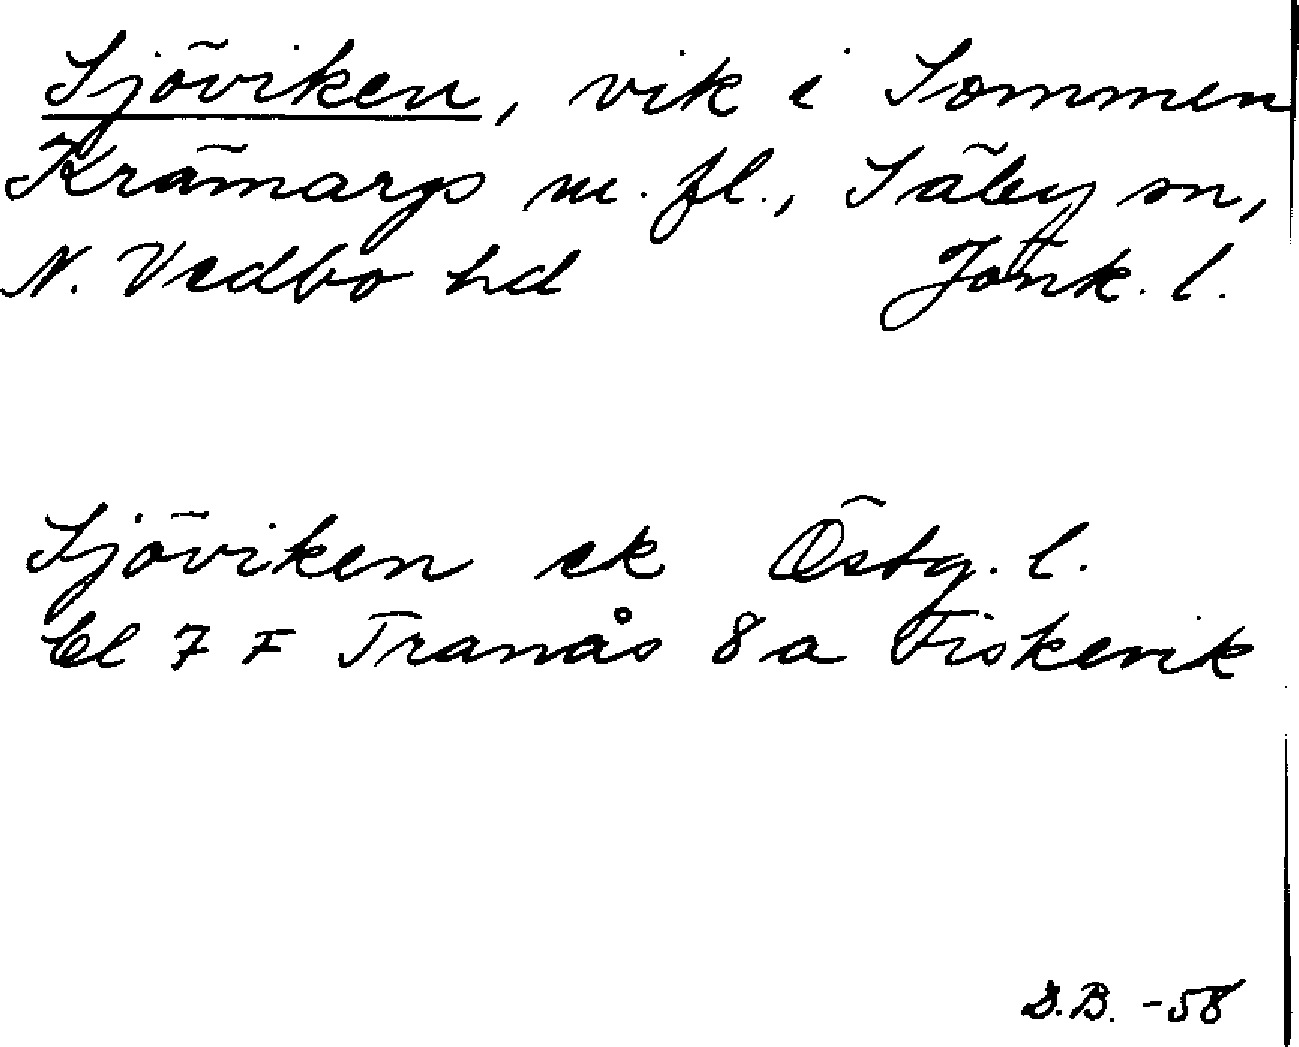 Sjöviken, vik i Sommen
Krämarp m. fl., Säby sn,
N. Vedbo hd Jönk. l.
Sjöviken ek Östg. l.
bl 7 F Tranås 8 a Fiskevik
D.B. -58